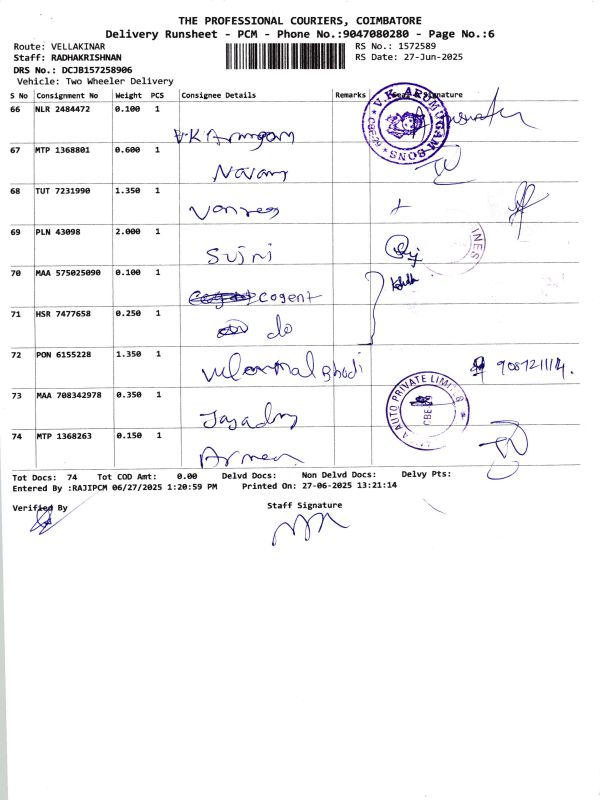 THE PROFESSIONAL COURIERS, COIMBATORE
Delivery Runsheet - PCM - Phone No.:9047080280 - Page No.:6
Route: VELLAKINAR RS No.: 1572589
Staff: RADHAKRISHNAN RS Date: 27-Jun-2025
DRS No.: DCJB157258906
Vehicle: Two Wheeler Delivery
S No Consignment No Weight PCS Consignee Details Remarks Signature
66 NLR 2484472 0.100 1 V.K Arumugam
V.K. ARUMUGAM SONS
67 MTP 1368801 0.600 1
68 TUT 7231990 1.350 1
69 PLN 43098 2.000 1 Sujni
INES
70 MAA 575025090 0.100 1 cogent
71 HSR 7477658 0.250 1 do
72 PON 6155228 1.350 1
73 MAA 708342978 0.350 1
A AUTO PRIVATE LIMITED
CBE
74 MTP 1368263 0.150 1
Tot Docs: 74 Tot COD Amt: 0.00 Delvd Docs: Non Delvd Docs: Delvy Pts:
Entered By :RAJIPCM 06/27/2025 1:20:59 PM Printed On: 27-06-2025 13:21:14
Verified By Staff Signature